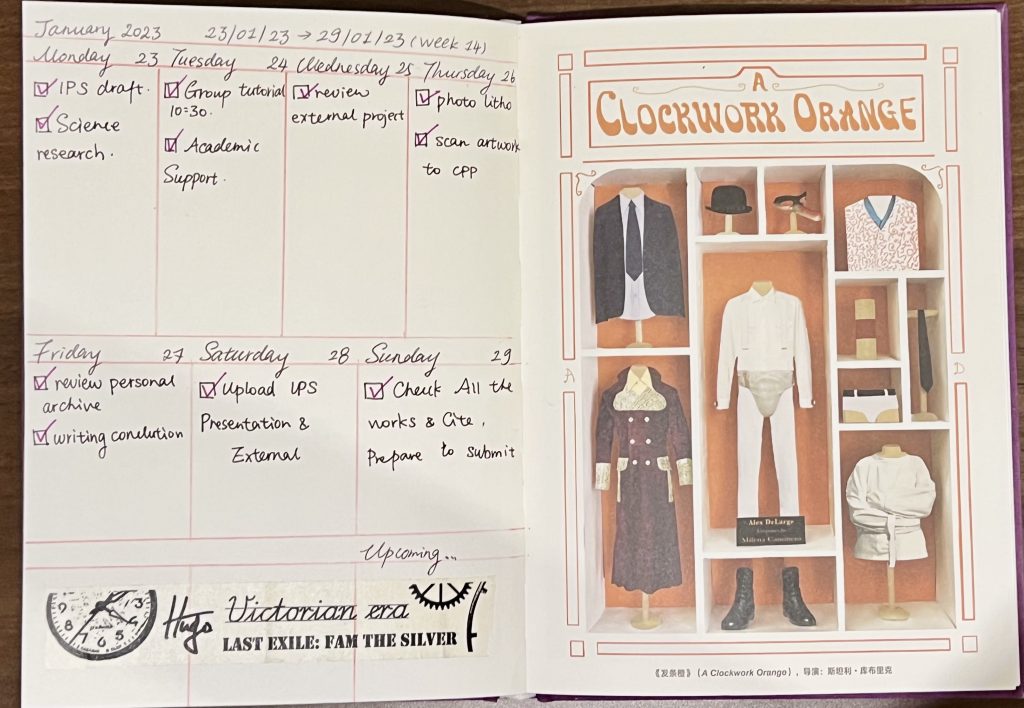 January 2023 23/01/23 → 29/01/23 (Week 14)
Monday 23 Tuesday 24 Wednesday 25 Thursday 26
IPS draft.
Science
research.
Group tutorial
10:30.
Academic
Support.
review
external projert
photo litho
scan artwork
to CPP
Friday 27 Saturday 28 Sunday 29
review personal
archive
writing conclution
Upload IPS
Presentation &
External
Check All the
works & Cite,
Prepare to submit
Upcoming...
Hugo Victorian era
LAST EXILE: FAM THE SILVER
A
CLOCKWORK ORANGE
A
D
Alex DeLarge
Milena Canonero
《发条橙》(A Clockwork Orange),导演:斯坦利·库布里克